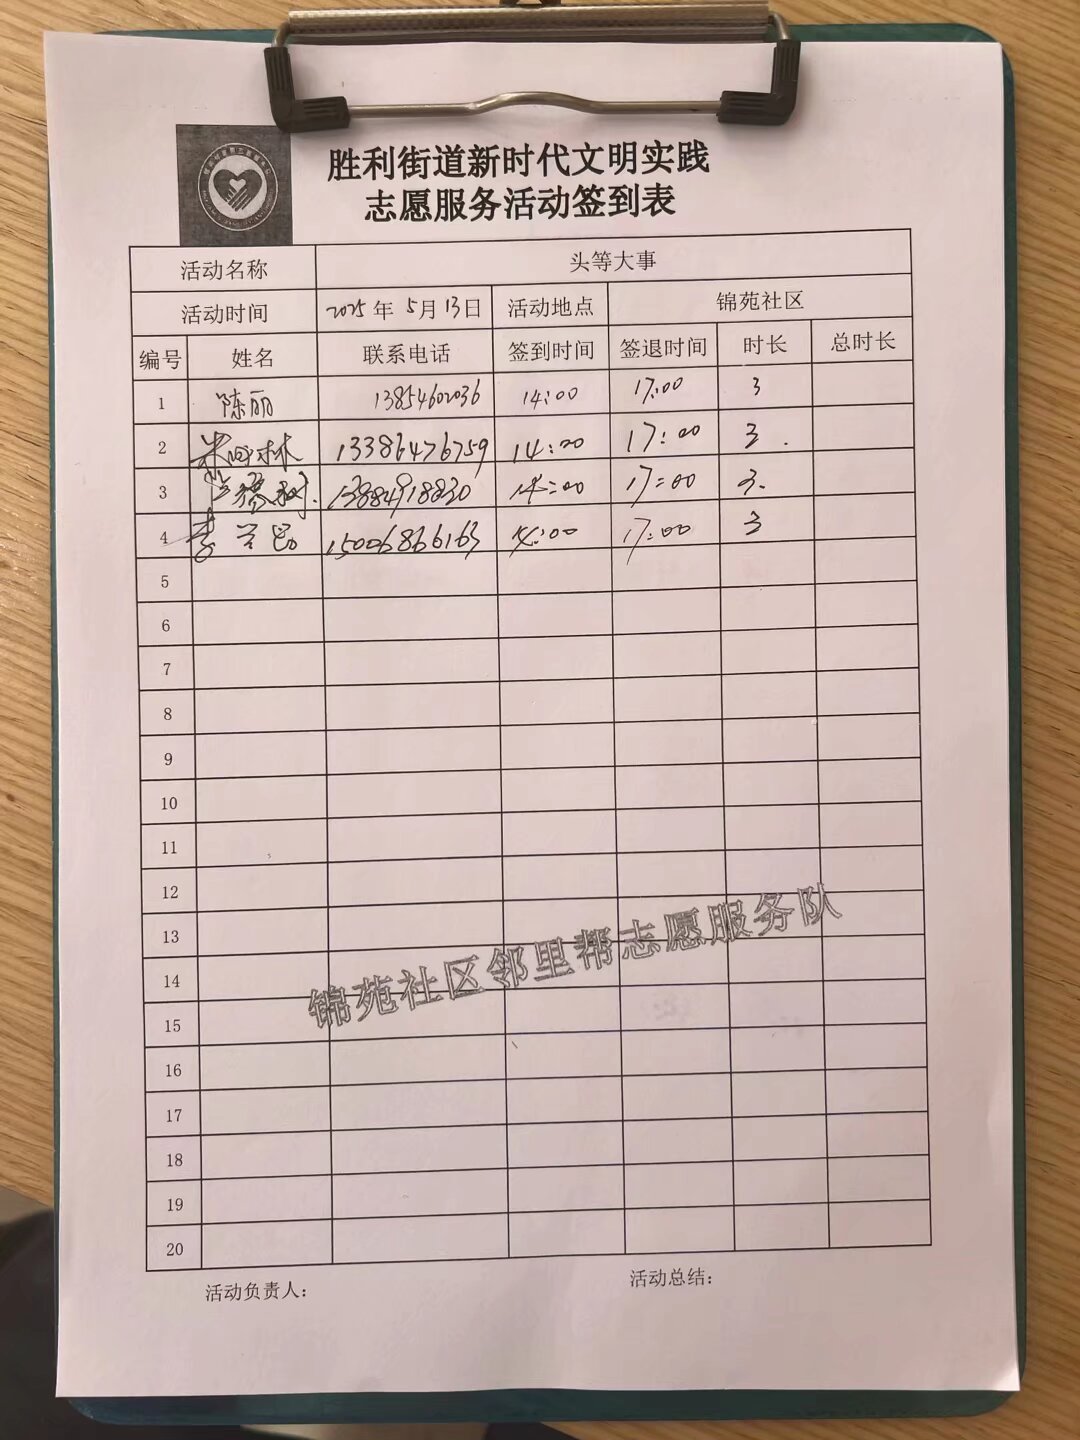 胜利街道新时代文明实践
志愿服务活动签到表
活动名称 头等大事
活动时间 2025年5月13日 活动地点 锦苑社区
编号 姓名 联系电话 签到时间 签退时间 时长 总时长
1 陈丽 13854602036 14:00 17:00 3
2 林 13386476759 14:00 17:00 3.
3 13884918830 14:00 17:00 3.
4 李兰 15006866163 14:00 17:00 3
5
6
7
8
9
10
11
12
13
14
15
16
17
18
19
20
锦苑社区邻里帮志愿服务队
活动负责人: 活动总结: